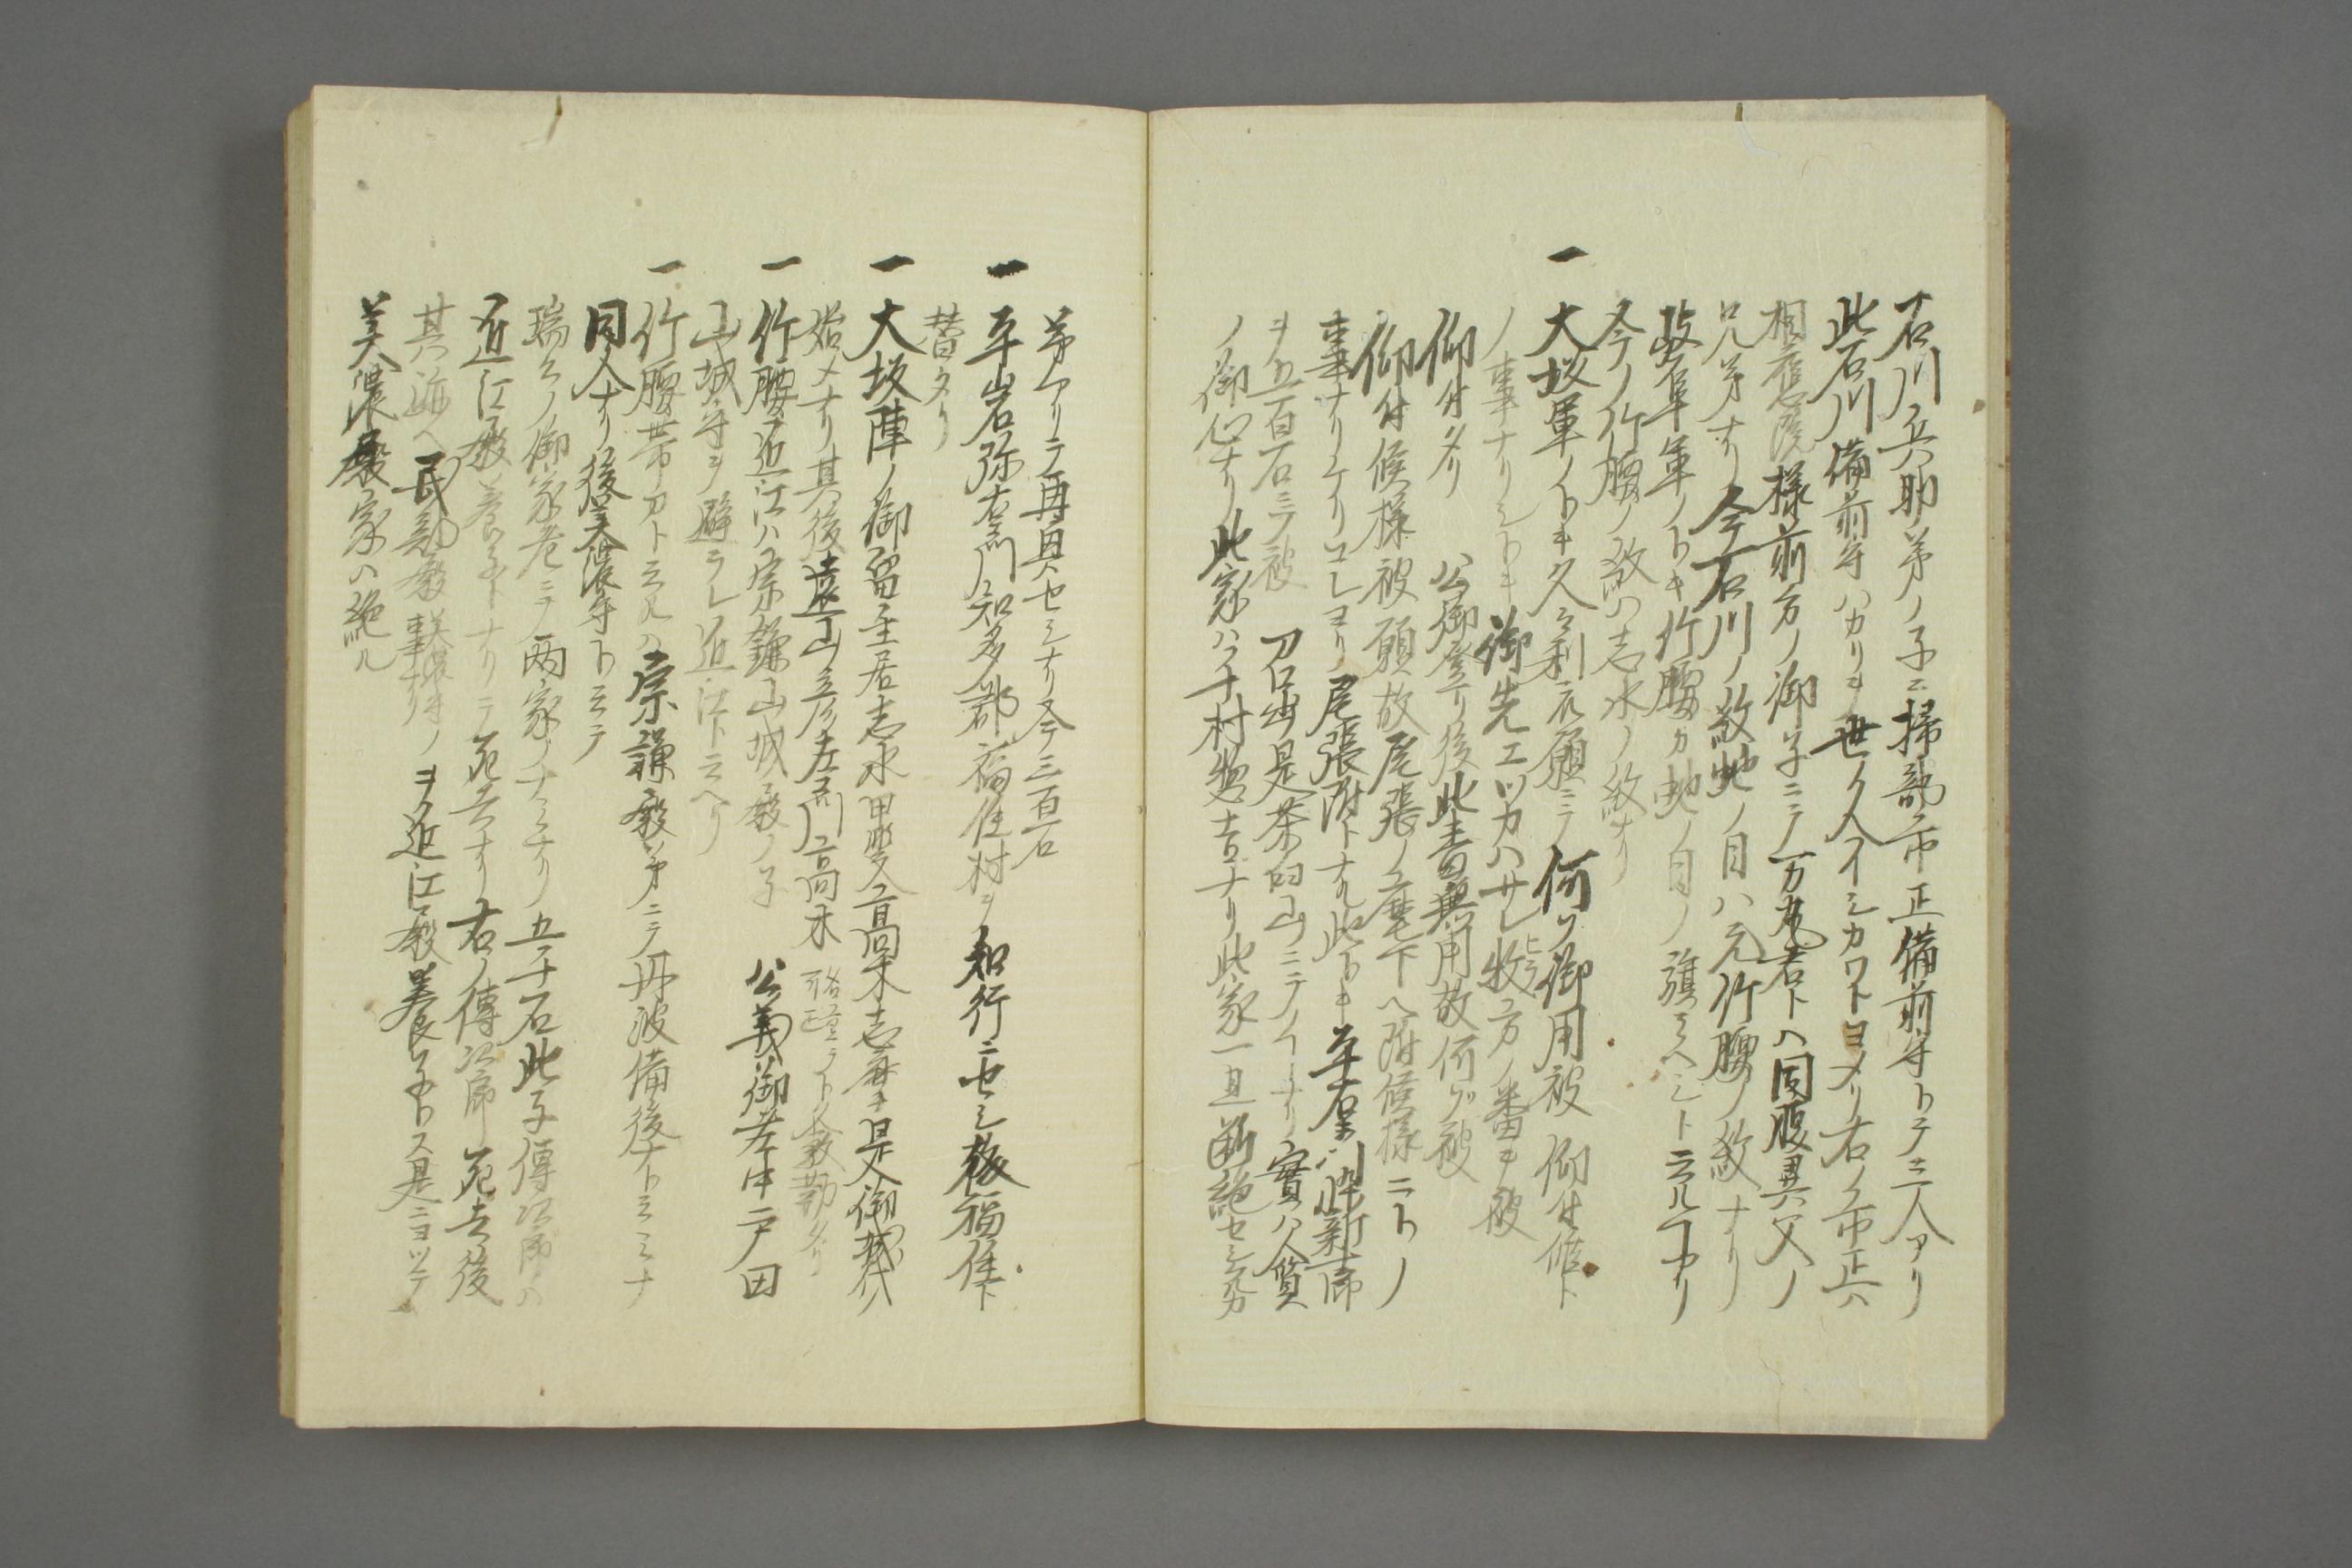 石川兵助ノ弟ノ子ニ掃部市正備前守トテ三人アリ
此石川備前守ハカリヲ世ノ人イシカワトヨメリ右ノ市正ハ
相応院様前方ノ御子ニテ万丸君トハ同腹異父ノ
兄弟ナリ今石川ノ紋蛇ノ目ハ元竹腰ノ紋ナリ
岐阜軍ノトキ竹腰カ蛇ノ目ノ旗ミヘシト云ルナリ
今ノ竹腰ノ紋ハ志水ノ紋ナリ
一大坂軍ノトキ久々利衆願ニテ何ソ御用被 仰付候ト
ノ事ナリシトキ御先エツカハサレ牧方ノ番ヲ被
仰付タリ 公御登リ後此書無用故何ゾ被
仰付候様被願故尾張ノ麾下ヘ附候様ニトノ
事ナリケリコレヨリ尾張附トナル此トキ平右衛門忰新十郎
ヲ五百石ニテ被 召出是茶臼山ニテノ ナリ實ハ人質
ノ御心ナリ此家ハ千村惣吉ナリ此家一旦断絶セシ
弟アリテ再興セシナリ今三百石
一平岩弥右衛門知多郡福住村ヲ知行ニセシ故福住ト
替タリ
一大坂陣ノ御留主居志水甲斐高木志摩是御城代ノ
始メナリ其後遠山彦左衛門高木 ト人数勤タリ
一竹腰近江ハ宗鎌山城殿ノ子 公義御老中戸田
山城守ヲ避ラレ近江ト云ヘリ
一竹腰帯刀ト云ルハ宗謙殿弟ニテ丹波備後ナト云ミナ
同人ナリ後美濃守ト云テ
瑞 ノ御家老ニテ両家ノナミナリ五千石此子傳次郎ハ
近江殿養子トナリテ死去ナリ右ノ傳次郎死去後
其 ヘ民部殿 ノヲ近江殿養子トス是ニヨツテ
美濃殿家ハ絶ル